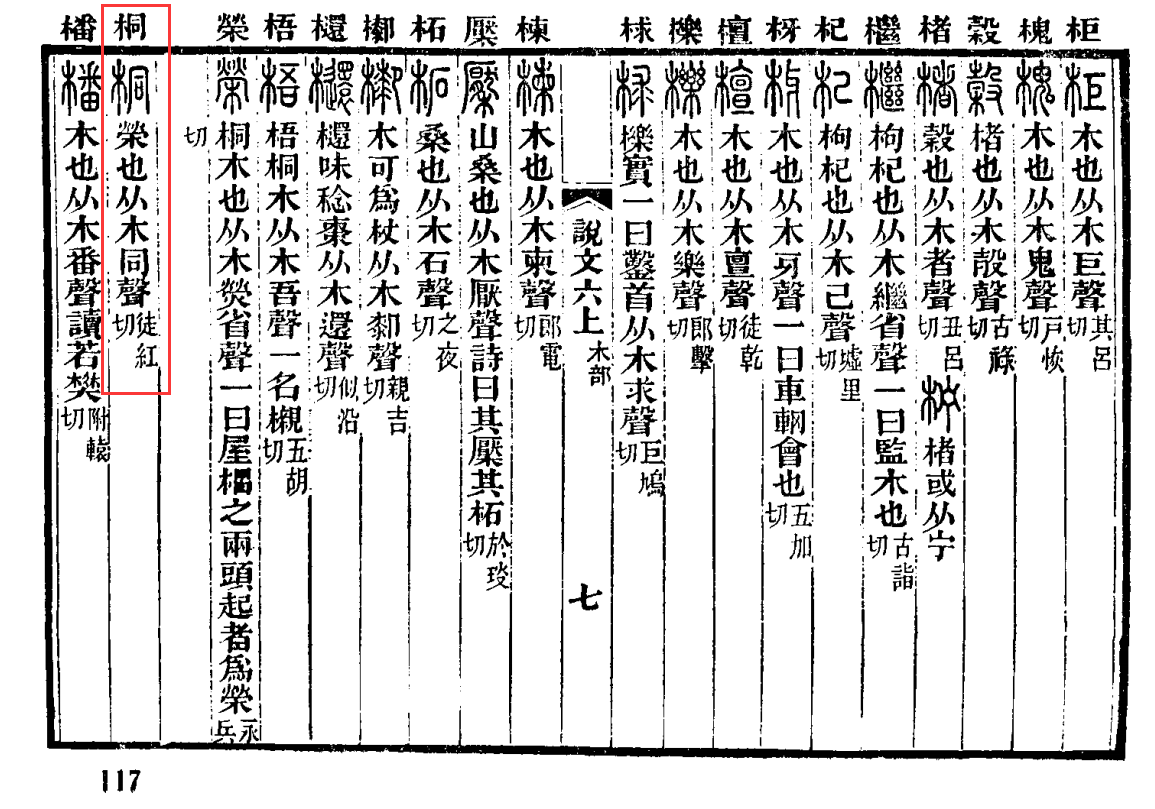 柜 槐 榖 楮 檵 杞 枒 檀 櫟 梂 楝 檿 柘 㮞 檈 梧 榮 桐 橎
柜 木也从木巨聲其呂切
槐 木也从木鬼聲戸恢切
榖 楮也从木㱿聲古禄切
楮 榖也从木者聲丑呂切 柠 楮或从宁
檵 枸杞也从木繼省聲一曰監木也古詣切
杞 枸杞也从木己聲墟里切
枒 木也从木牙聲一曰車輞會也五加切
檀 木也从木亶聲徒乾切
櫟 木也从木樂聲郎擊切
梂 櫟實一曰鑿首从木求聲巨鳩切
說文六上 木部 七
楝 木也从木柬聲郎電切
檿 山桑也从木厭聲詩曰其檿其柘於琰切
柘 桑也从木石聲之夜切
木可爲杖从木厀聲親吉切
味稔棗从木還聲似沿切
梧 梧桐木从木吾聲一名櫬五胡切
榮 桐木也从木熒省聲一曰屋梠之兩頭起者爲榮永兵
切
桐 榮也从木同聲徒紅切
橎 木也从木番聲讀若樊附轅切
117